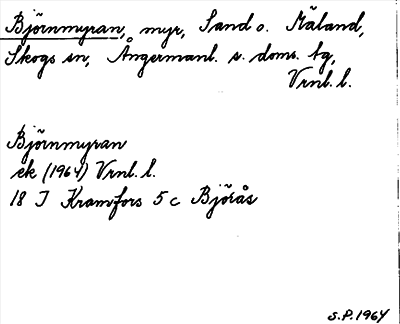 Björnmyran, myr, Sand o. Mäland,
Skogs sn, Ångermanl. s. doms. tg,
Vrnl. l.
Björnmyran
ek (1964) Vrnl. l.
18 I Kramfors 5 c Björås
S.P. 1964